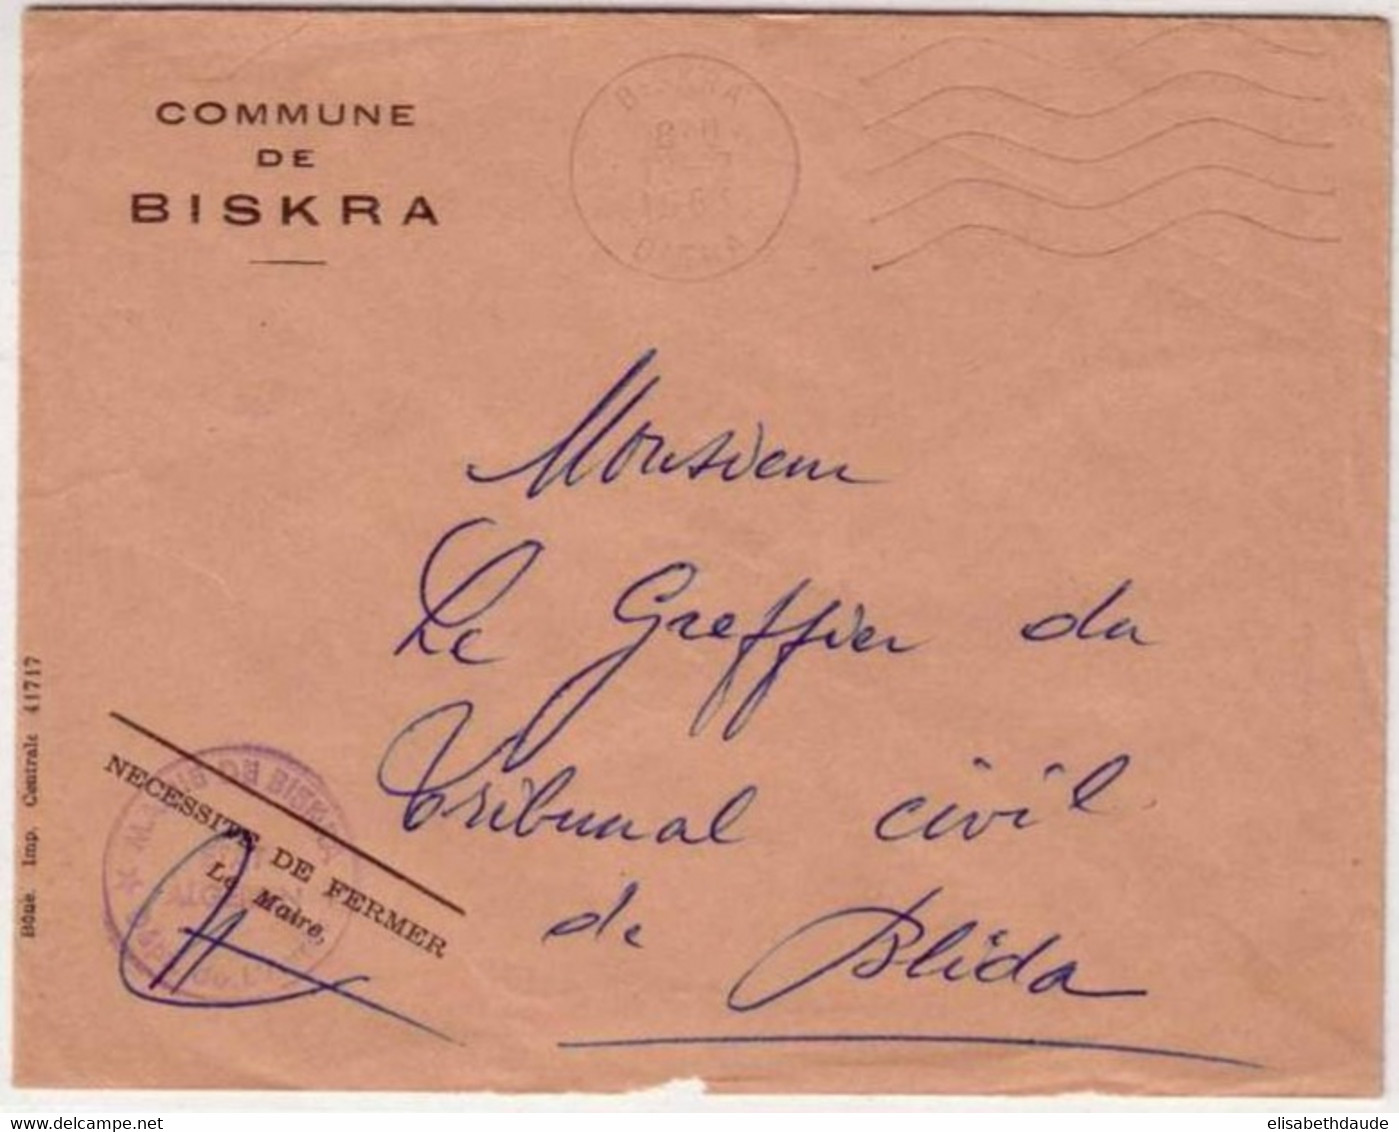 COMMUNE
DE
BISKRA
BISKRA
BATNA
Monsieur
Le Greffier du
Tribunal civil
de Blida
Bône. Imp. Centrale 41717
NECESSITE DE FERMER
Le Maire,
DE BISKRA
elisabethdaude